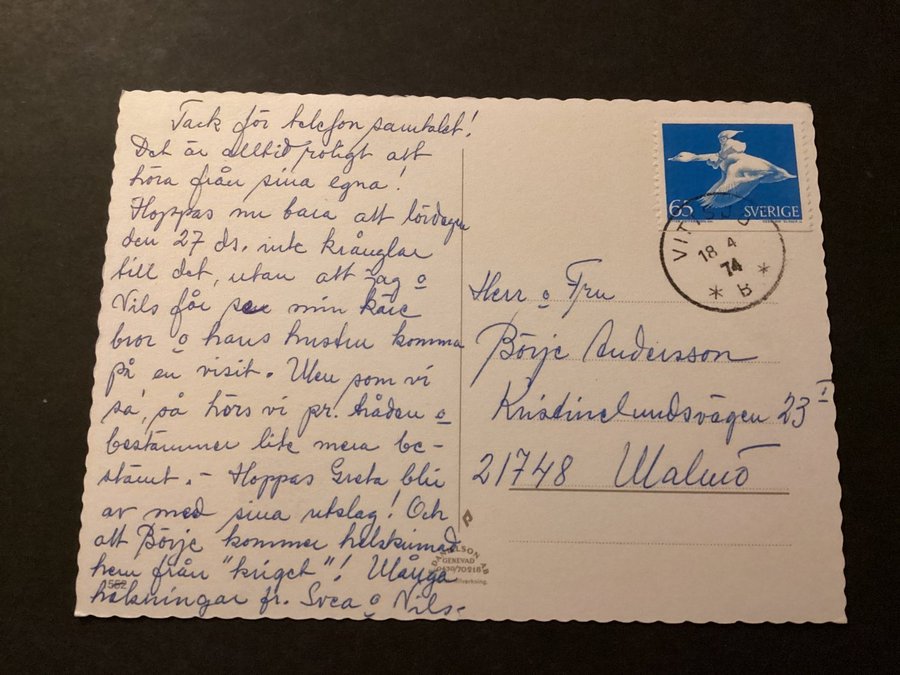 Tack för telefon samtalet!
Det är alltid roligt att
höra från sina egna!
Hoppas nu bara att lördagen
den 27 ds. inte krånglar
till det, utan att jag o
Nils får se min käre
bror o hans hustru komma
på en visit. Men som vi
sa', så hörs vi pr. tråden o
bestämmer lite mera be-
stämt. - Hoppas Greta blir
av med sina utslag! Och
att Börje kommer helskinnad
hem från "kriget"! Många
hälsningar fr. Svea o Nils-
65 SVERIGE
18 4
74
* B *
Herr o Fru
Börje Andersson
Kristinelundsvägen 23 I
21748 Malmö
GENEVAD
0430/70218
552